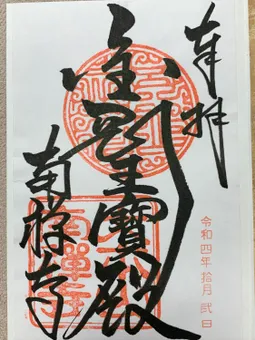 奉拝
金剛王寶殿
令和四年拾月弐日
南禅寺